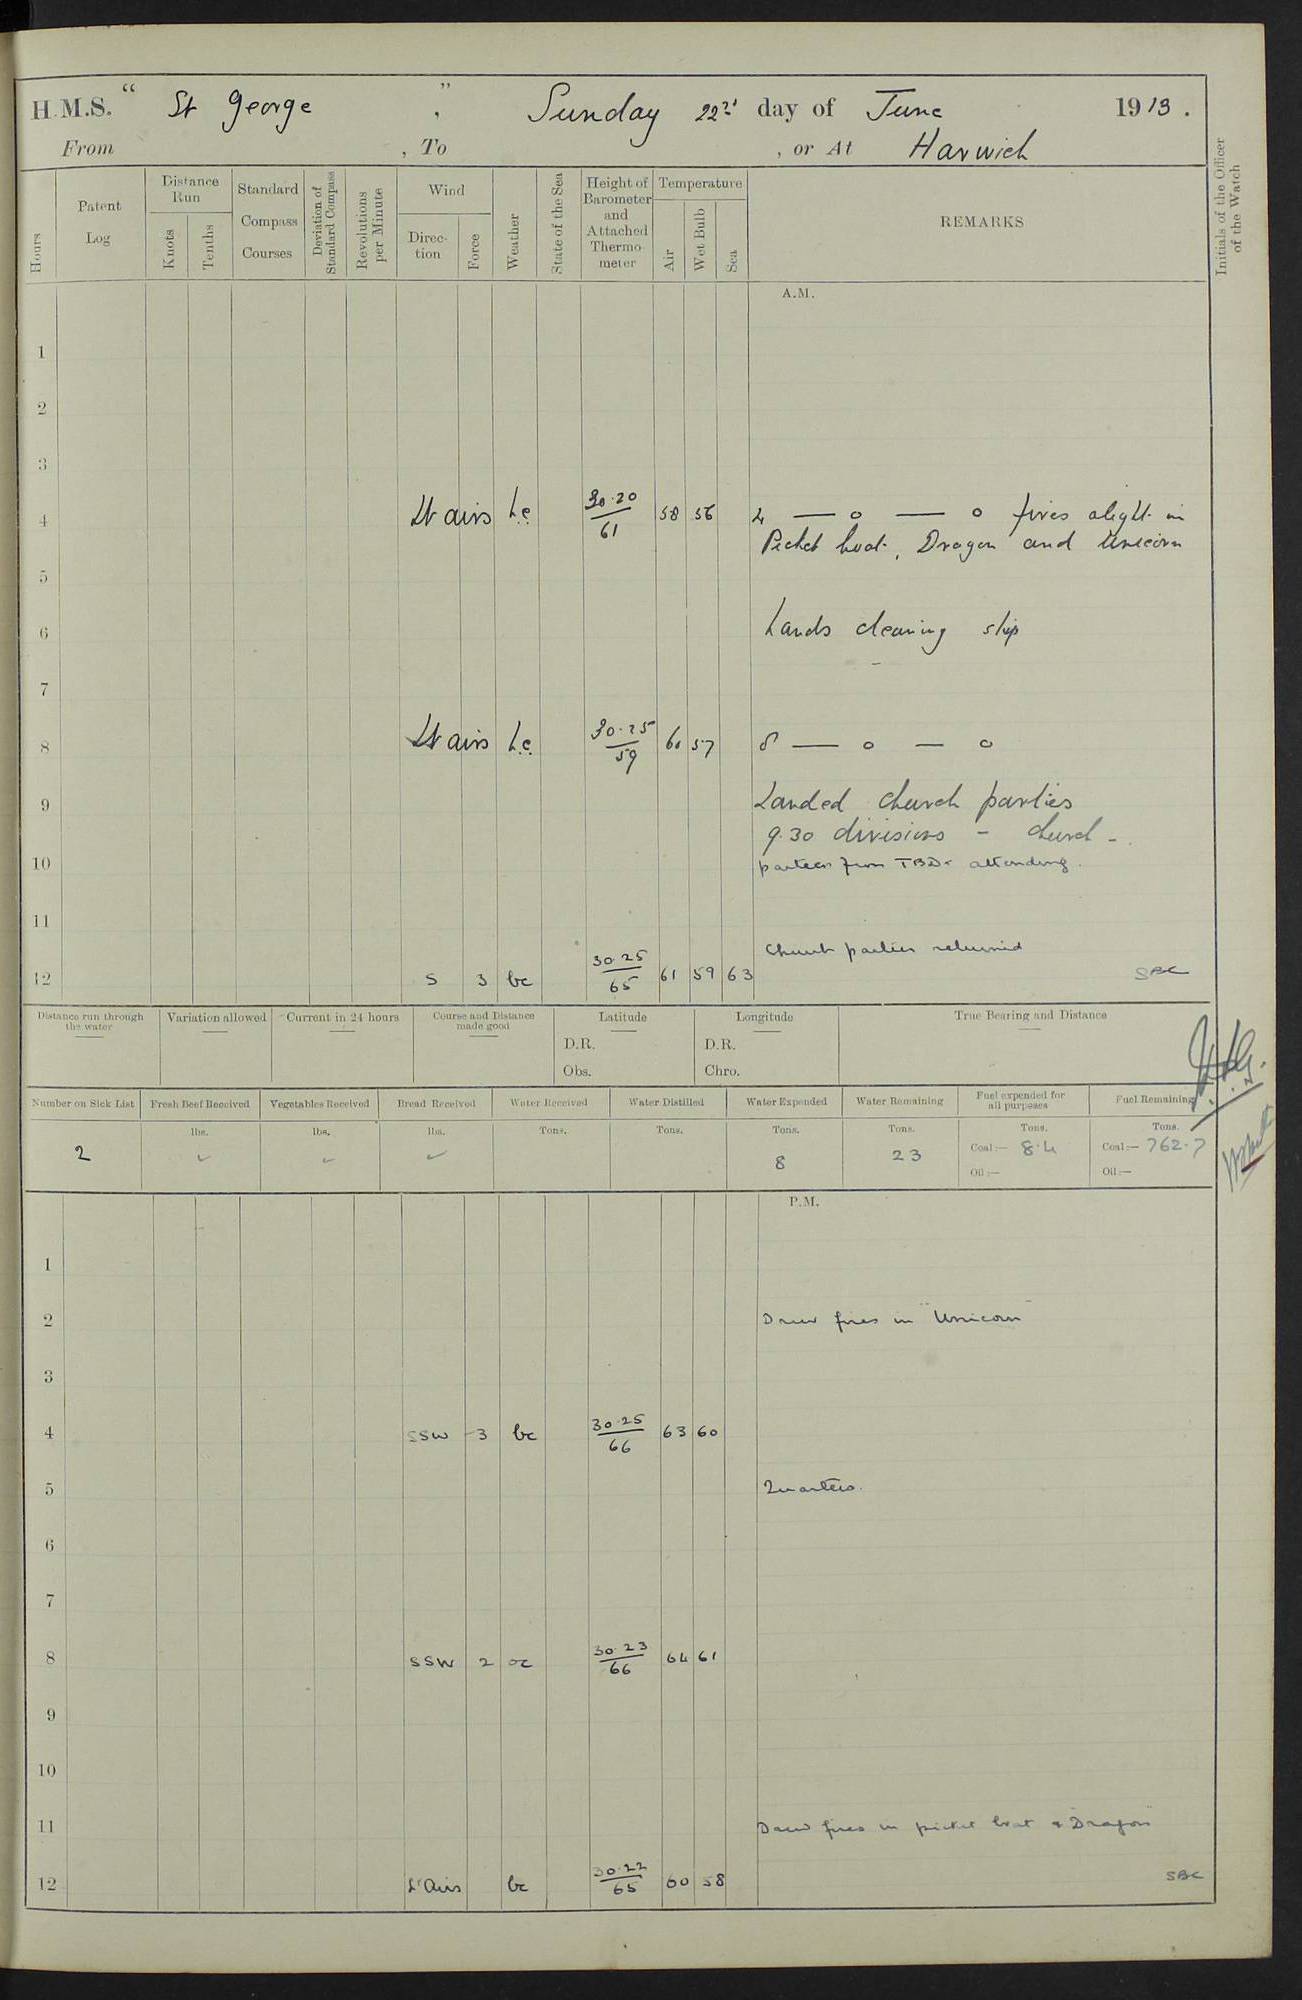 H.M.S. " St George ", Sunday 22nd day of June 1913.
From , To , or At Harwich
Hours
Patent Log
Distance Run
Knots
Tenths
Standard Compass Courses
Deviation of Standard Compass
Revolutions per Minute
Wind
Direction
Force
Weather
State of the Sea
Height of Barometer and Attached Thermometer
Temperature
Air
Wet Bulb
Sea
REMARKS
Initials of the Officer of the Watch
A.M.
1
2
3
4 Lt airs b.c. 30.20/61 58 56 4 — o — o fires alight in
Picket boat, Dragon and Unicorn
5
6 hands cleaning ship
7
8 Lt airs b.c. 30.25/59 60 57 8 — o — o
9 Landed church parties
9.30 divisions - church -
10 parties from TBDs attending.
11
Church parties returned
12 S 3 bc 30.25/65 61 59 63 SBC
Distance run through the water
Variation allowed
Current in 24 hours
Course and Distance made good
Latitude
D.R.
Obs.
Longitude
D.R.
Chro.
True Bearing and Distance
Number on Sick List
Fresh Beef Received
Vegetables Received
Bread Received
Water Received
Water Distilled
Water Expended
Water Remaining
Fuel expended for all purposes
Fuel Remaining
2
lbs. ✓
lbs. ✓
lbs. ✓
Tons.
Tons.
Tons. 8
Tons. 23
Tons.
Coal:— 8.4
Oil:—
Tons.
Coal:— 762.7
Oil:—
P.M.
1
2 Drew fires in "Unicorn"
3
4 SSW 3 bc 30.25/66 63 60
5 Quarters.
6
7
8 SSW 2 oc 30.23/66 64 61
9
10
11 Drew fires in picket boat & "Dragon"
12 Lt Airs bc 30.22/65 60 58 SBC